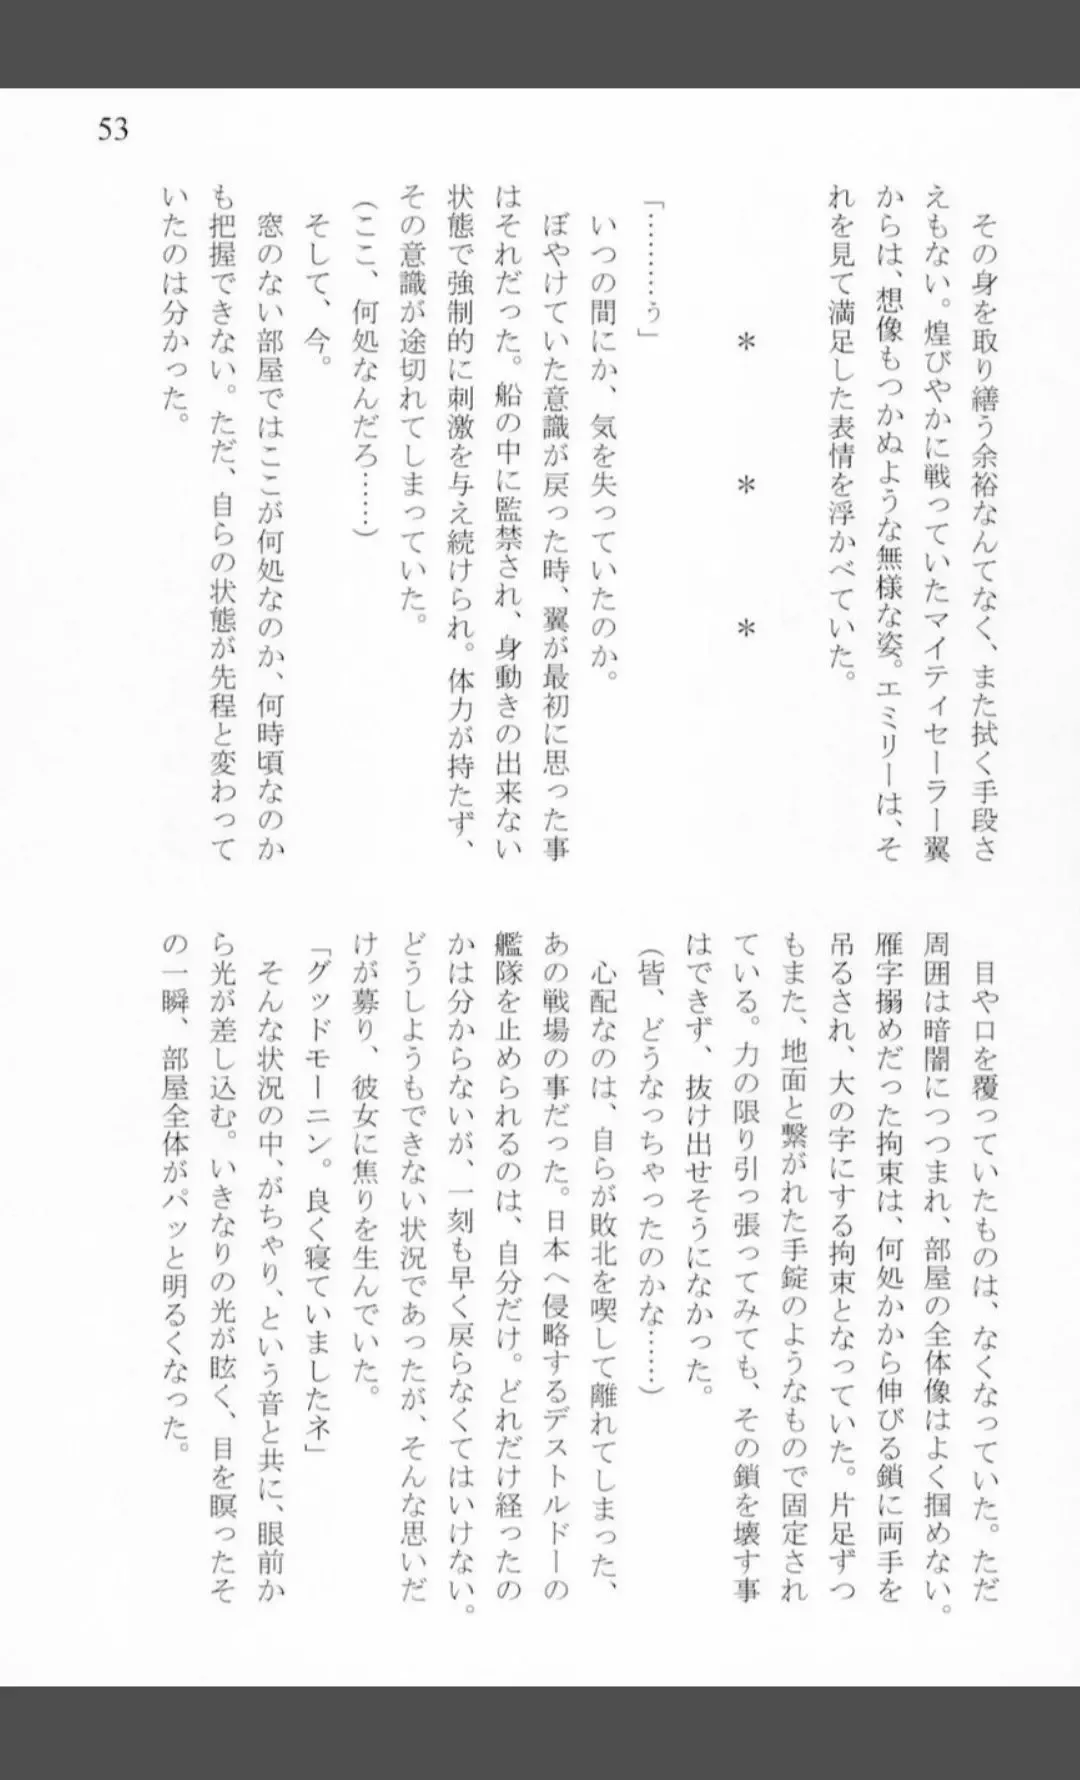 その身を取り繕う余裕なんてなく、また拭く手段さ
えもない。煌びやかに戦っていたマイティセーラー翼
からは、想像もつかぬような無様な姿。エミリーは、そ
れを見て満足した表情を浮かべていた。
＊　＊　＊
「………ぅ」
いつの間にか、気を失っていたのか。
ぼやけていた意識が戻った時、翼が最初に思った事
はそれだった。船の中に監禁され、身動きの出来ない
状態で強制的に刺激を与え続けられ。体力が持たず、
その意識が途切れてしまっていた。
(ここ、何処なんだろ……)
そして、今。
窓のない部屋ではここが何処なのか、何時頃なのか
も把握できない。ただ、自らの状態が先程と変わって
いたのは分かった。
目や口を覆っていたものは、なくなっていた。ただ
周囲は暗闇につつまれ、部屋の全体像はよく掴めない。
雁字搦めだった拘束は、何処かから伸びる鎖に両手を
吊るされ、大の字にする拘束となっていた。片足ずつ
もまた、地面と繋がれた手錠のようなもので固定され
ている。力の限り引っ張ってみても、その鎖を壊す事
はできず、抜け出せそうになかった。
(皆、どうなっちゃったのかな……)
心配なのは、自らが敗北を喫して離れてしまった、
あの戦場の事だった。日本へ侵略するデストルドーの
艦隊を止められるのは、自分だけ。どれだけ経ったの
かは分からないが、一刻も早く戻らなくてはいけない。
どうしようもできない状況であったが、そんな思いだ
けが募り、彼女に焦りを生んでいた。
「グッドモーニン。良く寝ていましたネ」
そんな状況の中、がちゃり、という音と共に、眼前か
ら光が差し込む。いきなりの光が眩く、目を瞑ったそ
の一瞬、部屋全体がパッと明るくなった。
53